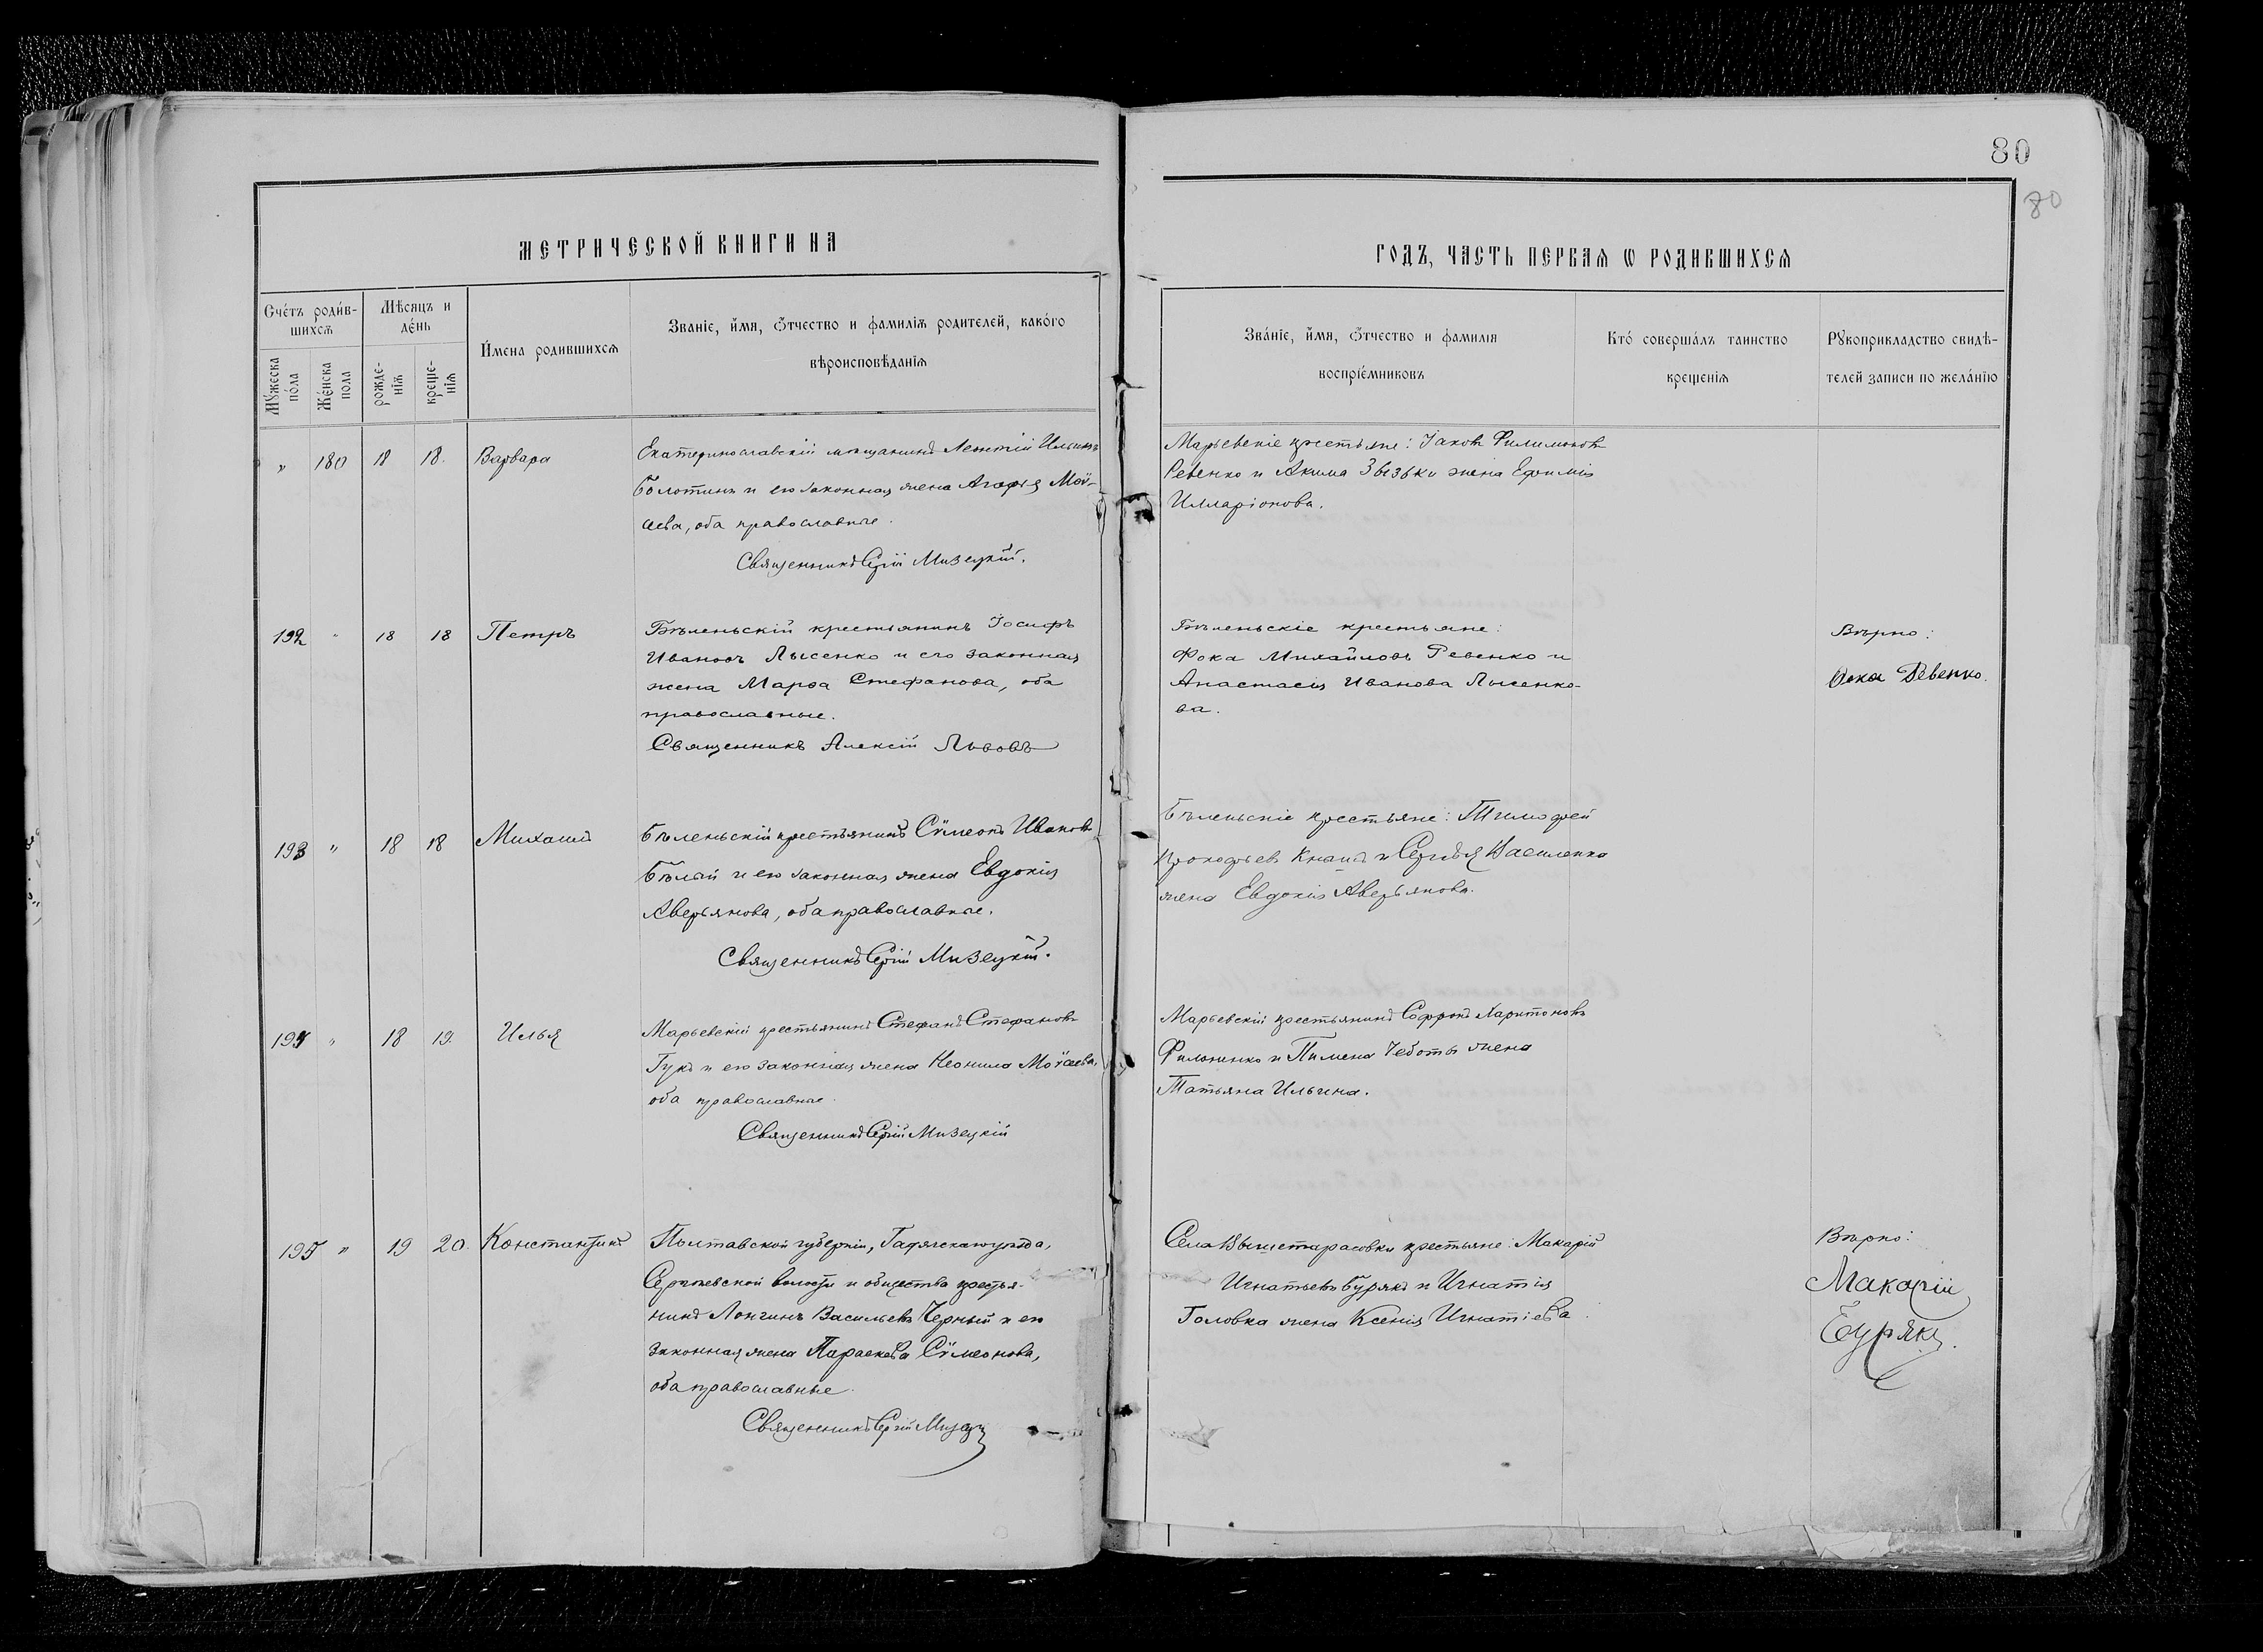 80
80
МЕТРИЧЕСКОЙ КНИГИ НА
ГОДЪ, ЧАСТЬ ПЕРВАѦ Ѡ РОДИВШИХСѦ
Счéтъ роди́в-
шихсѧ
Мѣсяцъ и
дéнь
Мꙋ́жеска
по́ла
Же́нска
пола
рожде-
нїѧ
креще-
нїѧ
И́мена родившихсѧ
Званїе, и́мя, ѻ҆́тчество и фамилїѧ родителей, како́го
вѣроисповѣ́данїѧ
Зва́нїе, и́мя, ѻ҆́тчество и фамилїя
воспрїе́мниковъ
Кто́ соверша́лъ таинство
крещенїѧ
Рꙋкоприкладство свидѣ-
телей записи по жела́нїю
" 180 18 18. Варвара
Екатеринославскій мѣщанинъ Леонтій Ильинъ
Болотинъ и его законная жена Агафія Моѵ-
сеева, оба православные.
Священникъ Сергій Мизецкій.
Марьевскіе крестьяне: Іаковъ Филимоновъ
Ревенко и Акима Звѣзьки жена Ефимія
Илларіонова.
192 " 18 18 Петръ
Бѣленьскій крестьянинъ Іосифъ
Ивановъ Лысенко и его законная
жена Марѳа Стефанова, оба
православные.
Священникъ Алексій Львовъ
Бѣленьскіе крестьяне:
Фока Михайловъ Ревенко и
Анастасія Иванова Лысенко-
ва.
Вѣрно:
Фока Ревенко.
193 " 18 18 Михаилъ
Бѣленьскій крестьянинъ Сѵмеонъ Ивановъ
Бѣлай и его законная жена Евдокія
Аверьянова, оба православные.
Священникъ Сергій Мизецкій.
Бѣленьскіе крестьяне: Тимофей
Прокофьевъ Кнышъ и Сергѣя Василенка
жена Евдокія Аверьянова.
194 " 18 19. Илья
Марьевскій крестьянинъ Стефанъ Стефановъ
Гукъ и его законная жена Неонила Моѵсеева,
оба православные.
Священникъ Сергій Мизецкій
Марьевскій крестьянинъ Софронъ Харитоновъ
Филоненко и Пимена Чеботы жена
Татьяна Ильина.
195 " 19 20. Константинъ
Полтавской губерніи, Гадячскаго уѣзда,
волости и общества крестья-
нинъ Лонгинъ Васильевъ Черный и его
законная жена Параскева Сѵмеонова,
оба православные.
Священникъ Сергій Мизецкій
Села Вышетарасовки крестьяне: Макарій
Игнатьевъ Бурякъ и Игнатія
Головка жена Ксенія Игнатіева.
Вѣрно:
Макарій
Бурякъ.